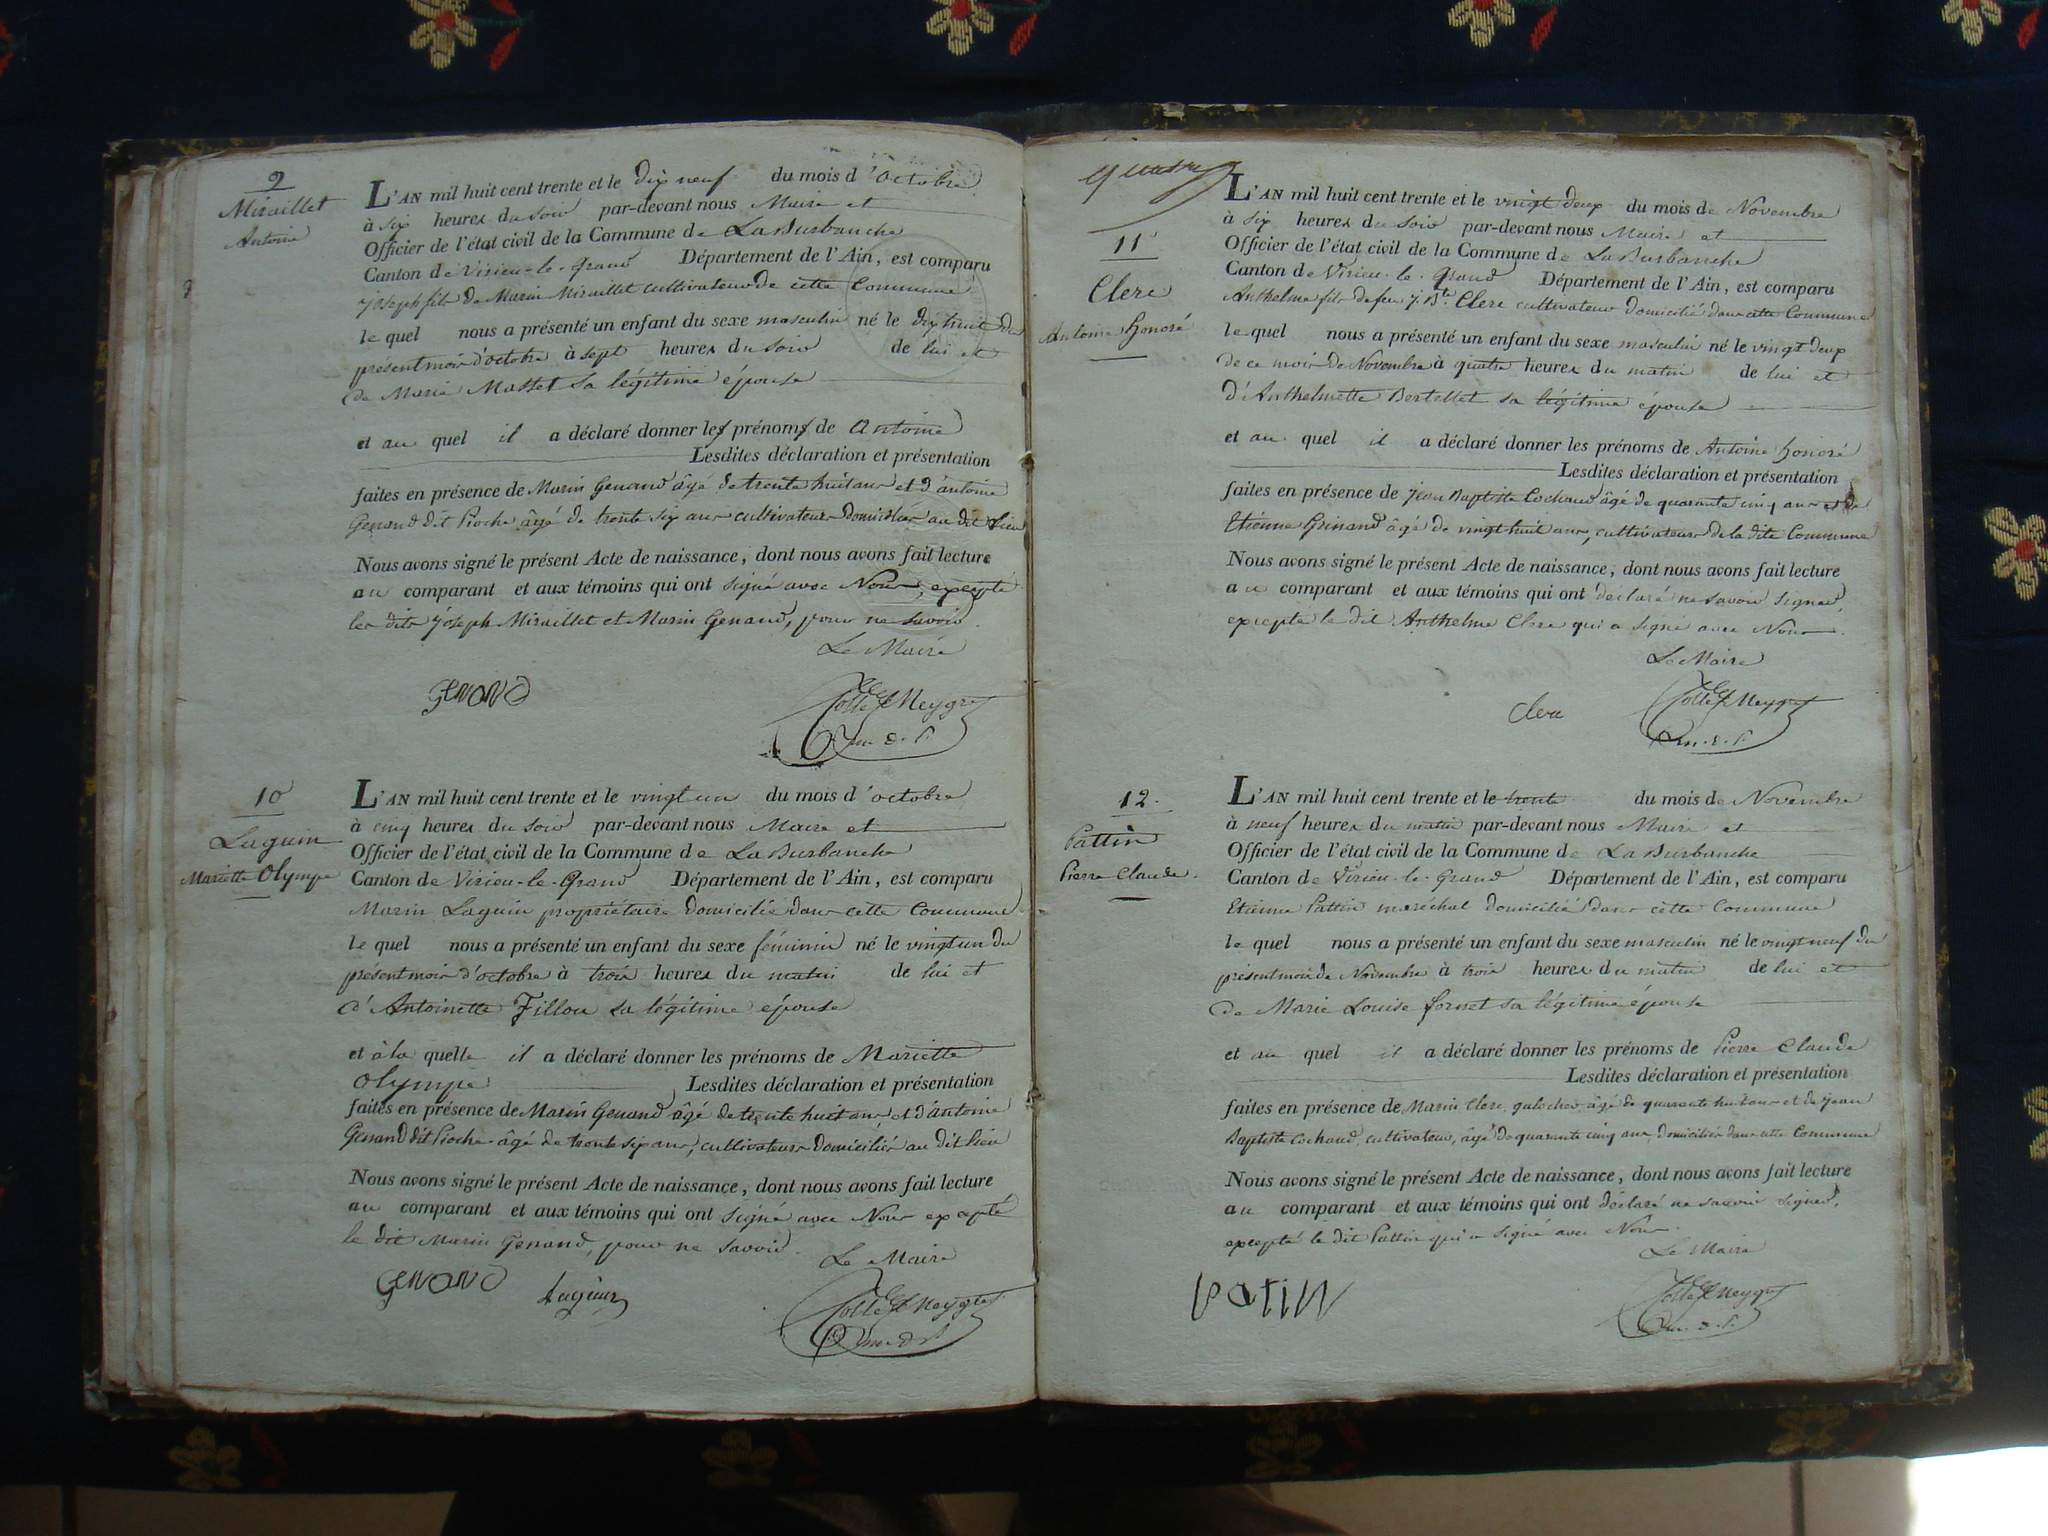 9
Miraillet
Antoine
L'AN mil huit cent trente et le dix neuf du mois d'octobre
à six heures du soir par-devant nous Maire et
Officier de l'état civil de la Commune de La Burbanche
Canton de Virieu-le-Grand Département de l'Ain, est comparu
Joseph fils de Marin Miraillet cultivateur de cette Commune
le quel nous a présenté un enfant du sexe masculin né le dix huit du
présent mois d'octobre à sept heures du soir de lui et
de Marie Masset sa légitime épouse
et au quel il a déclaré donner les prénoms de Antoine
Lesdites déclaration et présentation
faites en présence de Marin Genand âgé de trente huit ans et d'antoine
Genand dit Pioche âgé de trente six ans cultivateurs domiciliés au dit Lieu
Nous avons signé le présent Acte de naissance, dont nous avons fait lecture
au comparant et aux témoins qui ont signé avec Nous, excepté
les dits Joseph Miraillet et Marin Genand, pour ne savoir.
Le Maire
GENAND
10
Laguin
Mariette Olympe
L'AN mil huit cent trente et le vingt un du mois d'octobre
à cinq heures du soir par-devant nous Maire et
Officier de l'état civil de la Commune de La Burbanche
Canton de Virieu-le-Grand Département de l'Ain, est comparu
Marin Laguin propriétaire domicilié dans cette Commune
le quel nous a présenté un enfant du sexe féminin né le vingt un du
présent mois d'octobre à trois heures du matin de lui et
d'Antoinette Fillou sa légitime épouse
et à la quelle il a déclaré donner les prénoms de Mariette
Olympe Lesdites déclaration et présentation
faites en présence de Marin Genand âgé de trente huit ans, et d'antoine
Genand dit Pioche âgé de trente six ans, cultivateurs domiciliés au dit lieu
Nous avons signé le présent Acte de naissance, dont nous avons fait lecture
au comparant et aux témoins qui ont signé avec Nous excepté
le dit Marin Genand, pour ne savoir.
Le Maire
GENAND Laguin
11
Clerc
Antoine honoré
L'AN mil huit cent trente et le vingt deux du mois de Novembre
à six heures du soir par-devant nous Maire et
Officier de l'état civil de la Commune de La Burbanche
Canton de Virieu-le-Grand Département de l'Ain, est comparu
Anthelme fils de feu J. Bte Clerc cultivateur domicilié dans cette Commune
le quel nous a présenté un enfant du sexe masculin né le vingt deux
de ce mois de Novembre à quatre heures du matin de lui et
d'Anthelmette Bertellet sa légitime épouse
et au quel il a déclaré donner les prénoms de Antoine honoré
Lesdites déclaration et présentation
faites en présence de Jean Baptiste Cochaud âgé de quarante cinq ans et de
Etienne Grinand âgé de vingt huit ans, cultivateurs de la dite Commune
Nous avons signé le présent Acte de naissance, dont nous avons fait lecture
au comparant et aux témoins qui ont déclaré ne savoir signer,
excepté le dit Anthelme Clerc qui a signé avec Nous.
Le Maire
Clerc
12.
Pattin
Pierre Claude.
L'AN mil huit cent trente et le trente du mois de Novembre
à neuf heures du matin par-devant nous Maire et
Officier de l'état civil de la Commune de La Burbanche
Canton de Virieu-le-Grand Département de l'Ain, est comparu
Etienne Pattin maréchal domicilié dans cette Commune
le quel nous a présenté un enfant du sexe masculin né le vingt neuf du
présent mois de Novembre à trois heures du matin de lui et
de Marie Louise fornet sa légitime épouse
et au quel il a déclaré donner les prénoms de Pierre Claude
Lesdites déclaration et présentation
faites en présence de Marin Clerc, galocher, âgé de quarante huit ans et de Jean
Baptiste Cochaud, cultivateur, âgé de quarante cinq ans domiciliés dans cette Commune
Nous avons signé le présent Acte de naissance, dont nous avons fait lecture
au comparant et aux témoins qui ont déclaré ne savoir signer,
excepté le dit Pattin qui a signé avec Nous.
Le Maire
PATIN